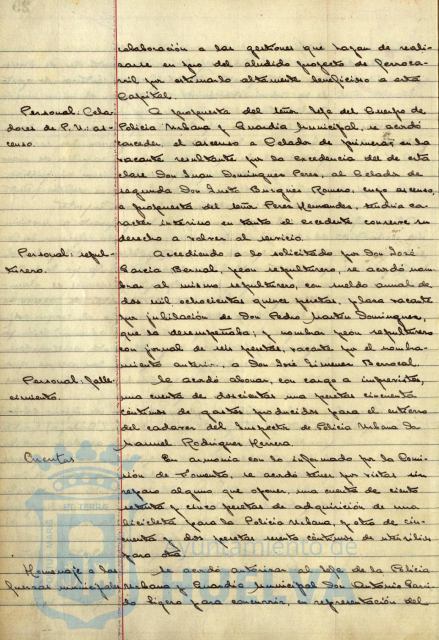 colaboración a las gestiones que hayan de reali-
zarse en pro del aludido proyecto de ferroca-
rril por estimarlo altamente beneficioso a esta
Capital.
Personal: Cela-
dores de P. U: as-
censo.
A propuesta del señor Jefe del Cuerpo de
Policía Urbana y Guardia Municipal, se acordó
conceder el ascenso a Celador de primera, en la
vacante resultante por la excedencia del de esta
clase Don Juan Domínguez Perez, al Celador de
segunda Don Justo Burgues Romero, cuyo ascenso,
a propuesta del señor Perez Hernandez, tendría ca-
racter interino en tanto el excedente conserve su
derecho a volver al servicio.
Personal: sepul-
turero.
Accediendo a lo solicitado por Don José
Garcia Bernal, peon sepulturero, se acordó nom-
brar al mismo sepulturero, con sueldo anual de
dos mil ochocientas quince pesetas, plaza vacante
por jubilación de Don Pedro Martin Domínguez,
que la desempeñaba; y nombrar peón sepulturero
con jornal de seis pesetas, vacante por el nombra-
miento anterior, a Don José Gimenez Berrocal.
Personal: falle-
cimiento.
Se acordó abonar, con cargo a imprevistos,
una cuenta de doscientas una pesetas cincuenta
céntimos de gastos producidos para el entierro
del cadaver del Inspector de Policía Urbana Don
Manuel Rodriguez Herrera.
Cuentas
En armonia con lo informado por la Comi-
sión de Fomento, se acordó tener por vistas sin
reparo alguno que oponer, una cuenta de ciento
setenta y cinco pesetas de adquisición de una
bicicleta para la Policía Urbana, y otra de cin-
cuenta y dos pesetas sesenta céntimos de utensilios
para
Ayuntamiento de
HUELVA
Homenaje a las
guerras municipales
Se acordó autorizar al Jefe de la Policía
Urbana y Guardia Municipal Don Antonio Garri-
do Ligero para concurrir, en representación del